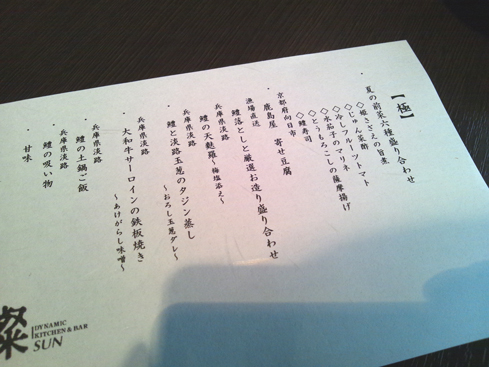 【極】
・夏の前菜六種盛り合わせ
◇姫さざえの旨煮
◇じゅん菜酢
◇冷しフルーツトマト
◇水茄子のマリネ
◇とうもろこしの薩摩揚げ
◇鱧寿司
京都府向日市
・鹿島屋 寄せ豆腐
漁場直送
・鱧落としと厳選お造り盛り合わせ
兵庫県淡路
・鱧の天麩羅～梅塩添え～
兵庫県淡路
・鱧と淡路玉葱のタジン蒸し
～おろし玉葱ダレ～
・大和牛サーロインの鉄板焼き
～あけがらし味噌～
兵庫県淡路
・鱧の土鍋ご飯
兵庫県淡路
・鱧の吸い物
・甘味
燦
DYNAMIC
KITCHEN & BAR
SUN